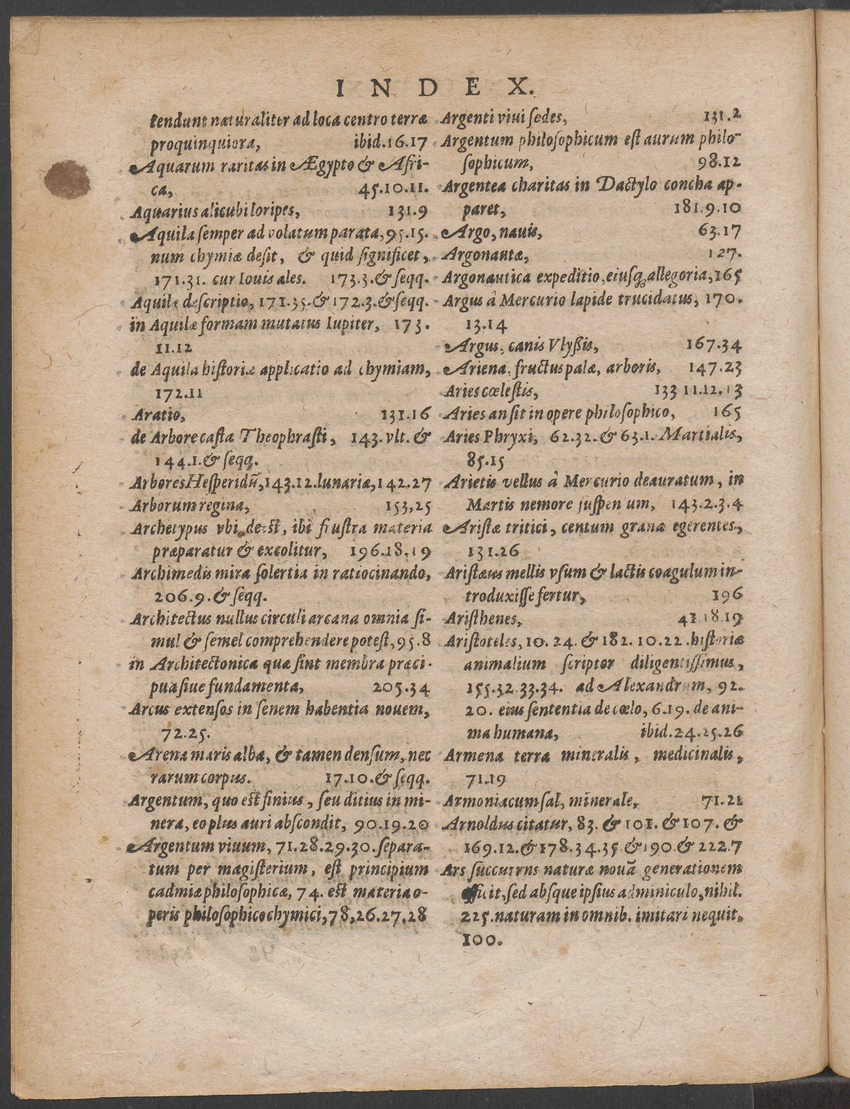 INDEX.
tendunt naturaliter ad loca centro terræ
proquinquiora, ibid.16.17
Aquarum raritas in Ægypto & Afri-
ca, 45.10.11.
Aquarius alicubi loripes, 131.9
Aquila semper ad volatum parata, 95.15.
num chymiæ desit, & quid significet,
171.31. cur Iouis ales. 173.3.& seqq.
Aquilæ descriptio, 171.35.& 172.3.& seqq.
in Aquilæ formam mutatus Iupiter, 173.
11.12
de Aquila historiæ applicatio ad chymiam,
172.11
Aratio, 131.16
de Arbore casta Theophrasti, 143. vlt. &
144.1.& seqq.
Arbores Hesperidũ, 143.12. lunariæ, 142.27
Arborum regina, 153,25
Archetypus vbi deest, ibi frustra materia
præparatur & excolitur, 196.18.19
Archimedis mira solertia in ratiocinando,
206.9.& seqq.
Architectus nullus circuli arcana omnia si-
mul & semel comprehendere potest, 95.8
in Architectonica quæ sint membra præci-
pua siue fundamenta, 205.34
Arcus extensos in senem habentia nouem,
72.25.
Arena maris alba, & tamen densum, nec
rarum corpus. 17.10.& seqq.
Argentum, quo est finius, seu ditius in mi-
nera, eo plus auri abscondit, 90.19.20
Argentum viuum, 71.28.29.30. separa-
tum per magisterium, est principium
cadmiæ philosophicæ, 74. est materia o-
peris philosophico chymici, 78,26.27.28
Argenti viui sedes, 131.2
Argentum philosophicum est aurum philo-
sophicum, 98.12
Argentea charitas in Dactylo concha ap-
paret, 181.9.10
Argo, nauis, 63.17
Argonautæ, 127.
Argonautica expeditio, eiusq; allegoria, 165
Argus à Mercurio lapide trucidatus, 170.
13.14
Argus, canis Vlyßis, 167.34
Ariena, fructus palæ, arboris, 147.23
Aries cœlestis, 133 11.12.13
Aries an sit in opere philosophico, 165
Aries Phryxi, 62.32.& 63.1. Martialis,
85.15
Arietis vellus à Mercurio deauratum, in
Martis nemore suspensum, 143.2.3.4
Aristæ tritici, centum grana egerentes,
131.26
Aristæus mellis vsum & lactis coagulum in-
troduxisse fertur, 196
Aristhenes, 41.18.19
Aristoteles, 10. 24. & 182. 10.22. historiæ
animalium scriptor diligentissimus,
155.32.33.34. ad Alexandrum, 92.
20. eius sententia de cœlo, 6.19. de ani-
ma humana, ibid.24.25.26
Armena terra mineralis, medicinalis,
71.19
Armoniacum sal, minerale, 71.21
Arnoldus citatur, 83. & 101. & 107. &
169.12.& 178.34.35.& 190.& 222.7
Ars succurrns naturæ nouã generationem
efficit, sed absque ipsius adminiculo, nihil.
225. naturam in omnib. imitari nequit,
100.